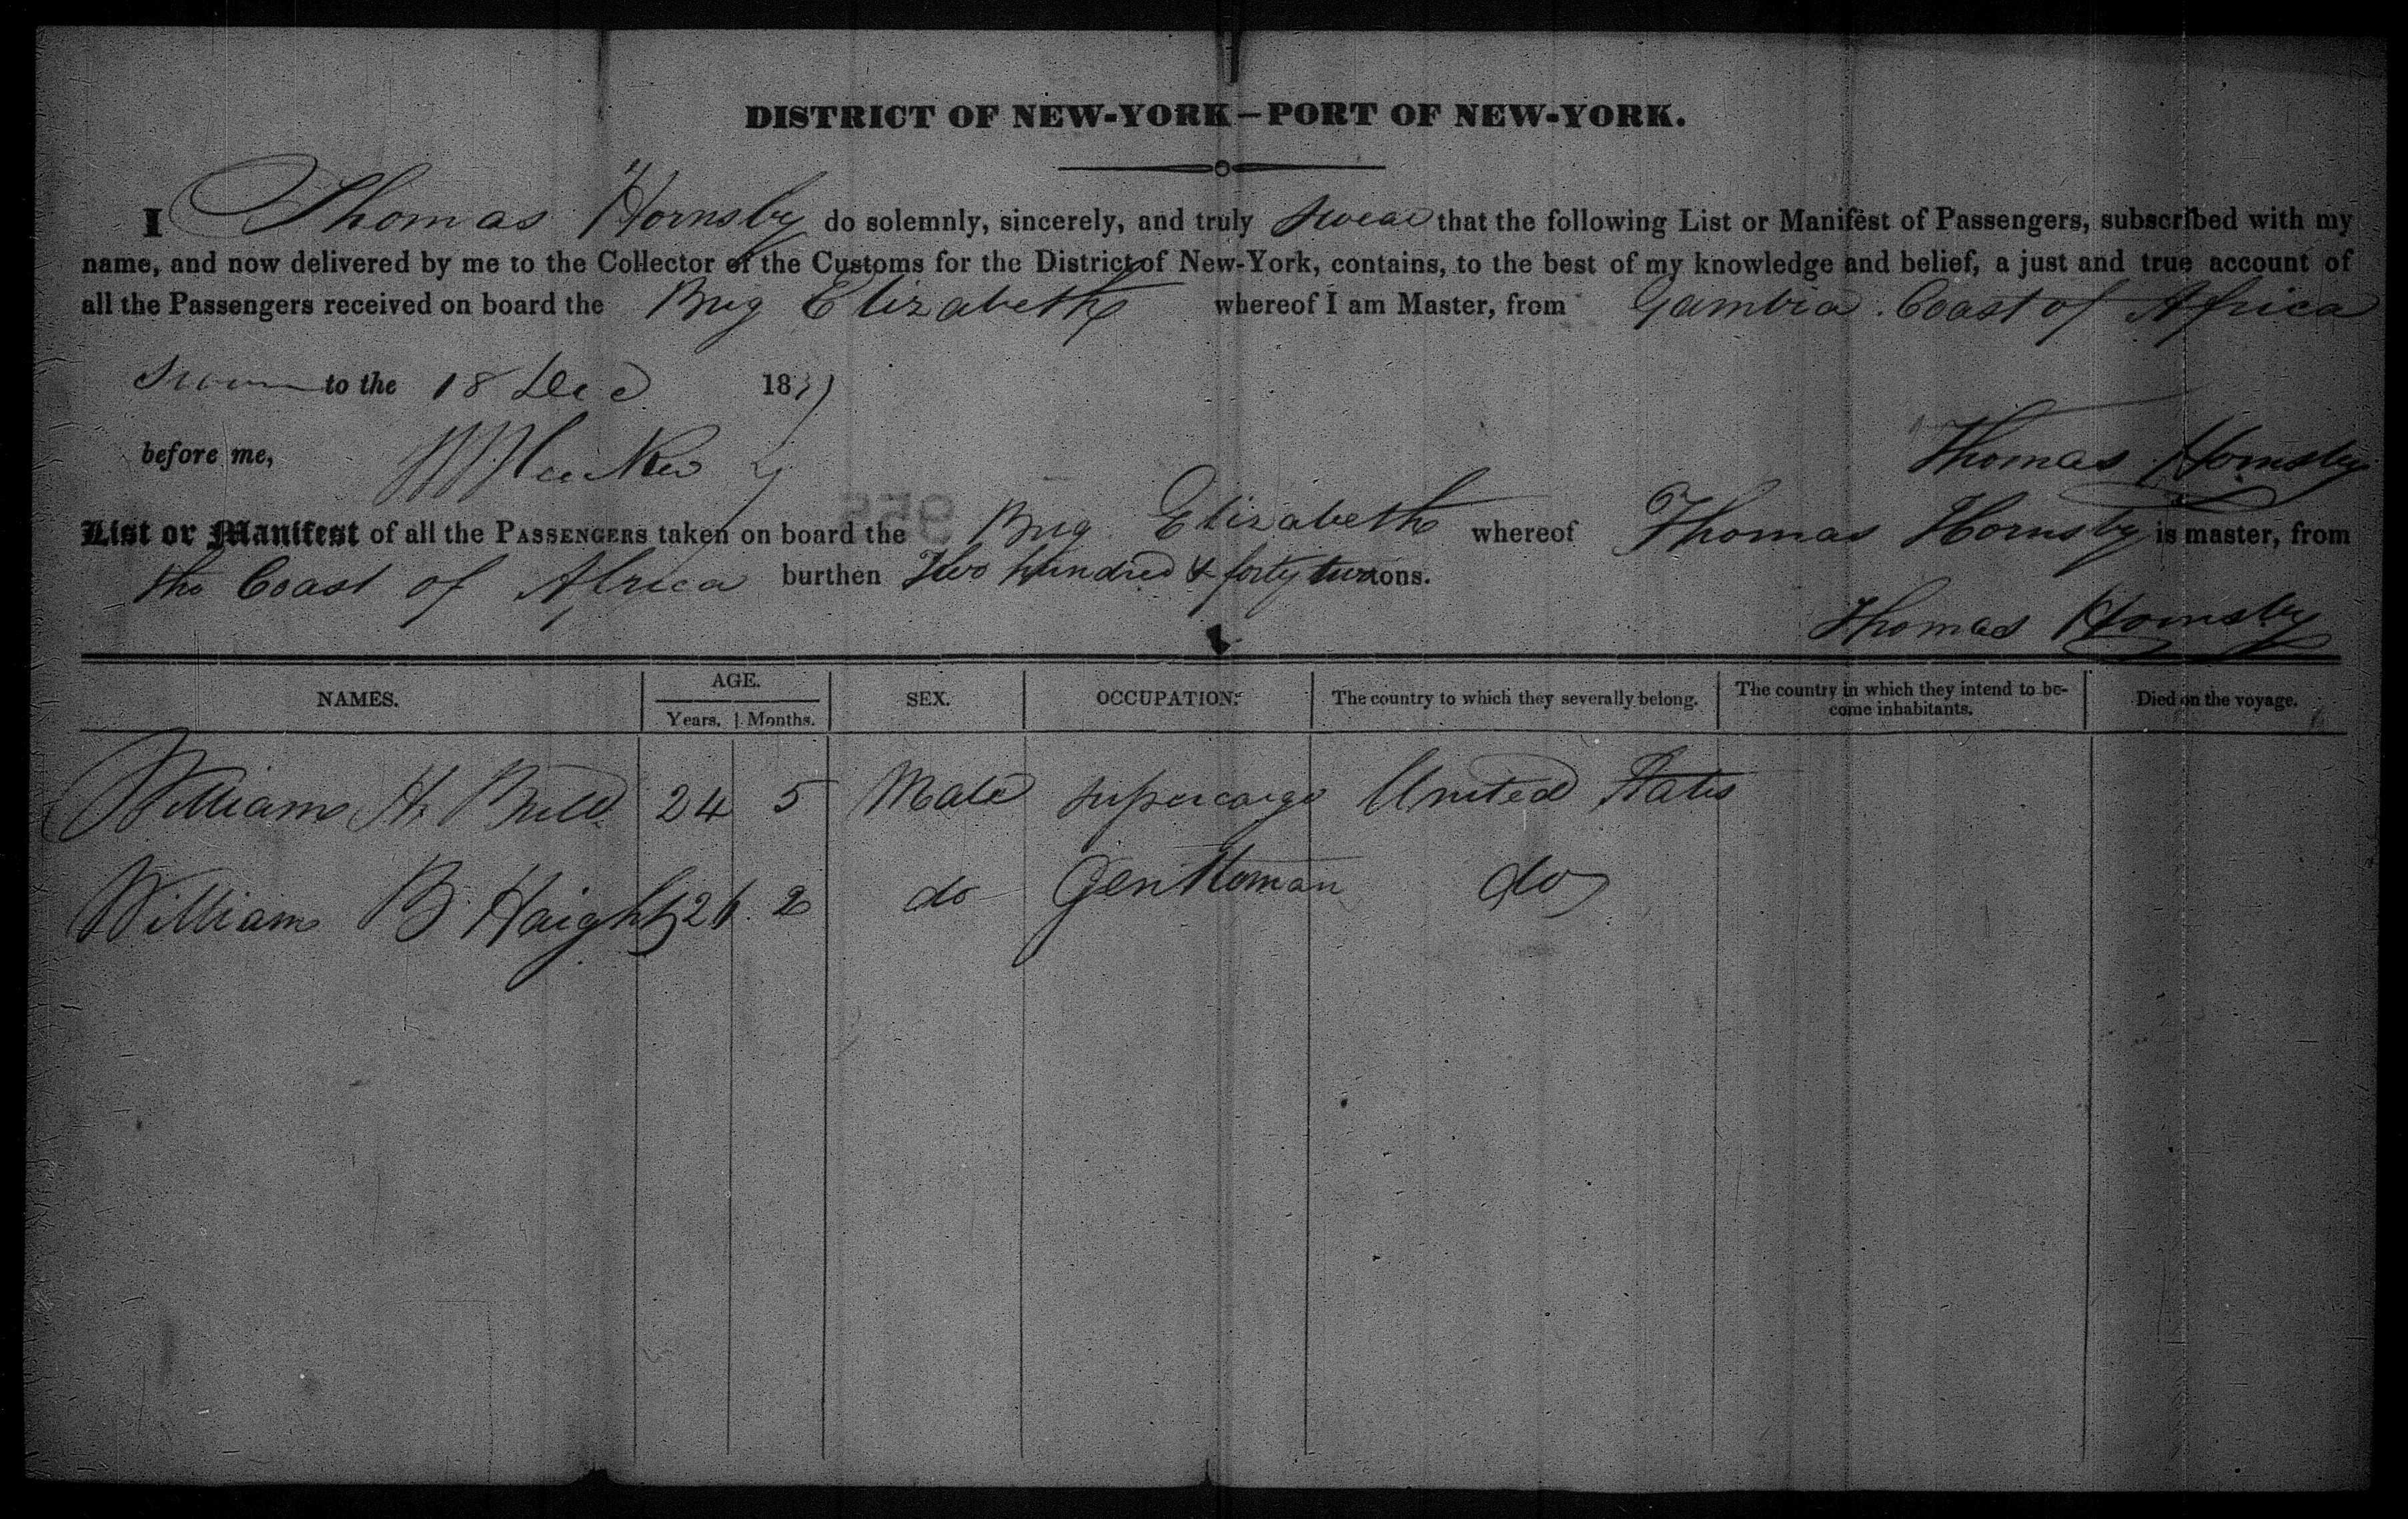 DISTRICT OF NEW-YORK—PORT OF NEW-YORK.
I Thomas Hornsby do solemnly, sincerely, and truly swear that the following List or Manifest of Passengers, subscribed with my
name, and now delivered by me to the Collector of the Customs for the District of New-York, contains, to the best of my knowledge and belief, a just and true account of
all the Passengers received on board the Brig Elizabeth whereof I am Master, from Gambia Coast of Africa
Sworn to the 18 Dec 183
before me,
Thomas Hornsby
List or Manifest of all the PASSENGERS taken on board the Brig Elizabeth whereof Thomas Hornsby is master, from
the Coast of Africa burthen Two hundred & forty two tons.
Thomas Hornsby
NAMES. AGE. SEX. OCCUPATION. The country to which they severally belong. The country in which they intend to be-
come inhabitants. Died on the voyage.
Years. Months.
William H. 24 5 Male supercargo United States
William B Haight 26 2 do Gentleman do